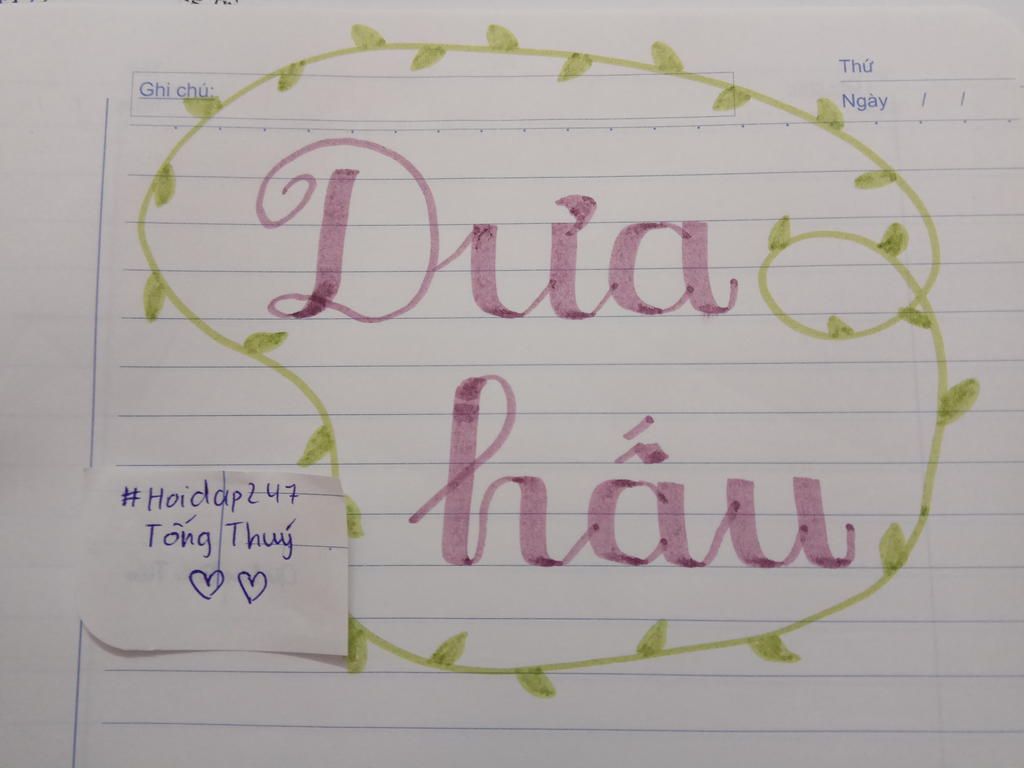 Ghi chú:
Thứ
Ngày / /
Dưa
hấu
#Hoidap247
Tống Thuý